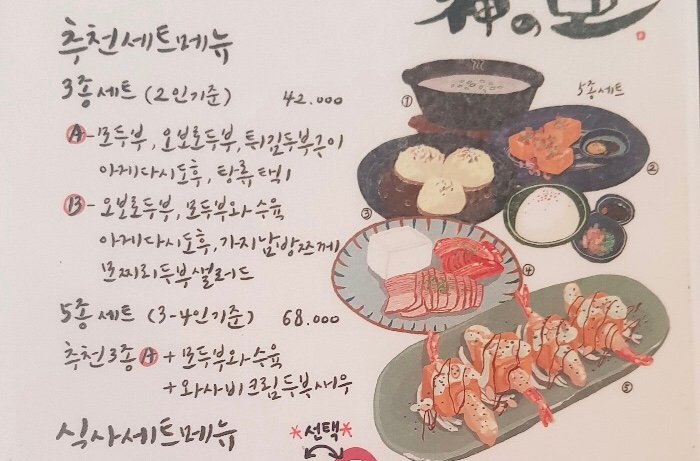 神の豆
추천세트메뉴
3종세트 (2인기준) 42.000
A-모두부, 오보로두부, 튀김두부구이
아게다시도후, 탕류택1
B-오보로두부, 모두부와수육
아게다시도후, 가지남방쯔께
모찌리두부샐러드
5종세트 (3-4인기준) 68.000
추천3종 A + 모두부와수육
+ 와사비크림두부새우
식사세트메뉴 *선택*
5종세트
①
②
③
④
⑤